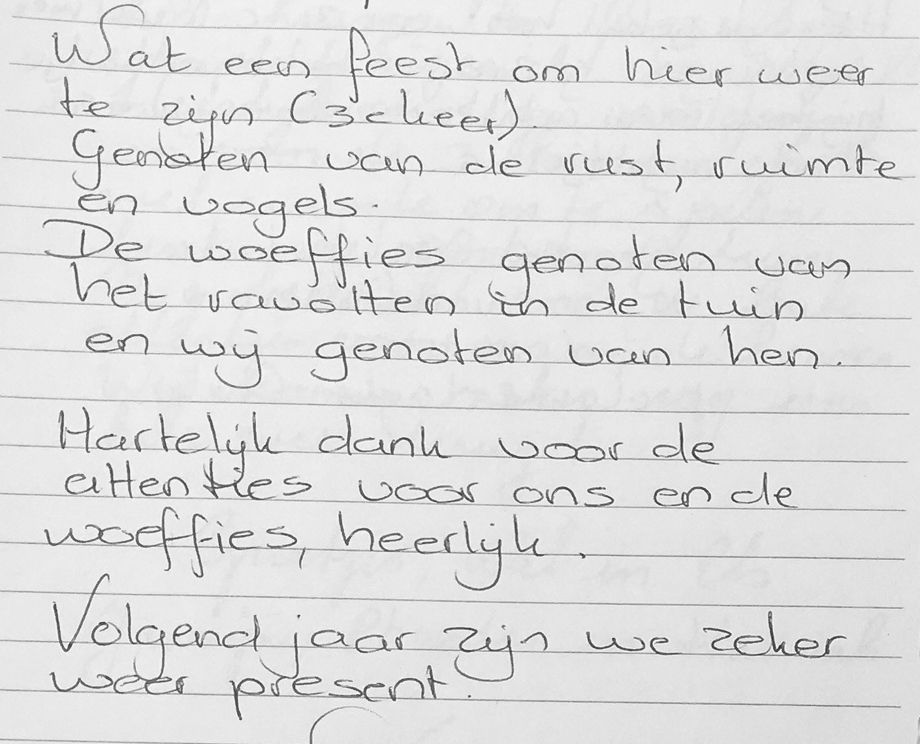 Wat een feest om hier weer
te zijn (3e keer).
Genoten van de rust, ruimte
en vogels.
De woeffies genoten van
het ravotten in de tuin
en wij genoten van hen.
Hartelijk dank voor de
attenties voor ons en de
woeffies, heerlijk.
Volgend jaar zijn we zeker
weer present.